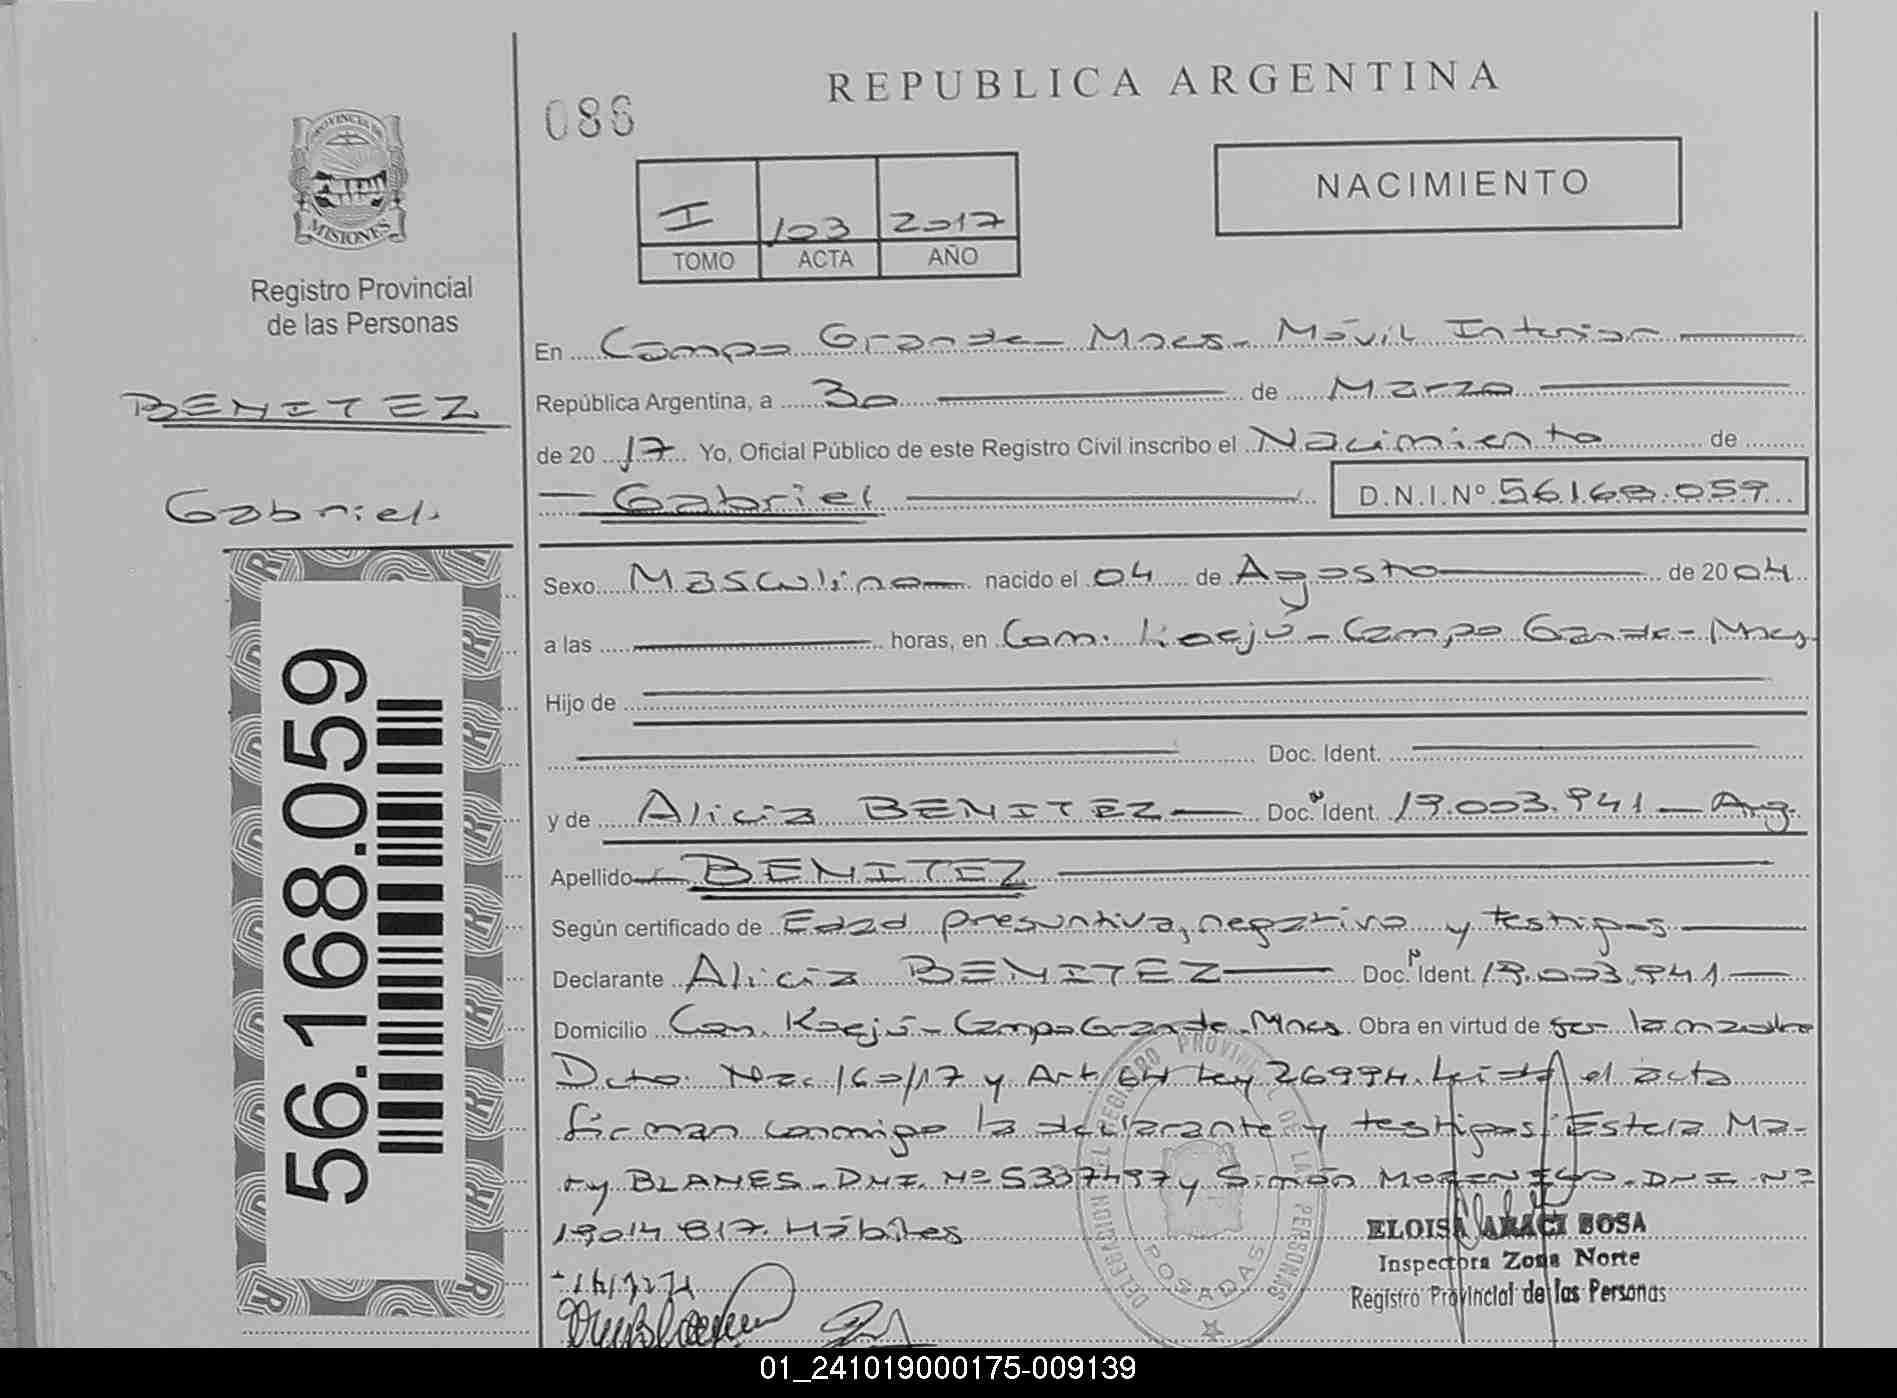 REPUBLICA ARGENTINA
088
PROVINCIA DE
MISIONES
Registro Provincial
de las Personas
I 103 2017
TOMO ACTA AÑO
NACIMIENTO
BENITEZ
Gabriel.
56.168.059
En Campo Grande - Mnes - Móvil Interior
República Argentina, a 30 de Marzo
de 2017 Yo, Oficial Público de este Registro Civil inscribo el Nacimiento de
Gabriel D.N.I.Nº 56.168.059
Sexo Masculino nacido el 04 de Agosto de 2004
a las horas, en Com. Kaejú - Campo Grande - Mnes
Hijo de
Doc. Ident.
y de Alicia BENITEZ Doc. Ident. 19.003.941 - Arg.
Apellido BENITEZ
Según certificado de Edad presuntiva, negativo y testigos
Declarante Alicia BENITEZ Doc. Ident. 19.003.941
Domicilio Com. Kaejú - Campo Grande - Mnes. Obra en virtud de ser la madre
Dcto. Nac. 160/17 y Art. 64 Ley 26994. Leída el acta
firman conmigo la declarante y testigos Estela Ma-
ry BLANES - DNI. Nº 5337497 y Simón MORINIGO - DNI Nº
19014817. Hábiles
DELEGACION DEL REGISTRO PROVINCIAL DE LAS PERSONAS
POSADAS
ELOISA ARACI SOSA
Inspectora Zona Norte
Registro Provincial de las Personas
01_241019000175-009139